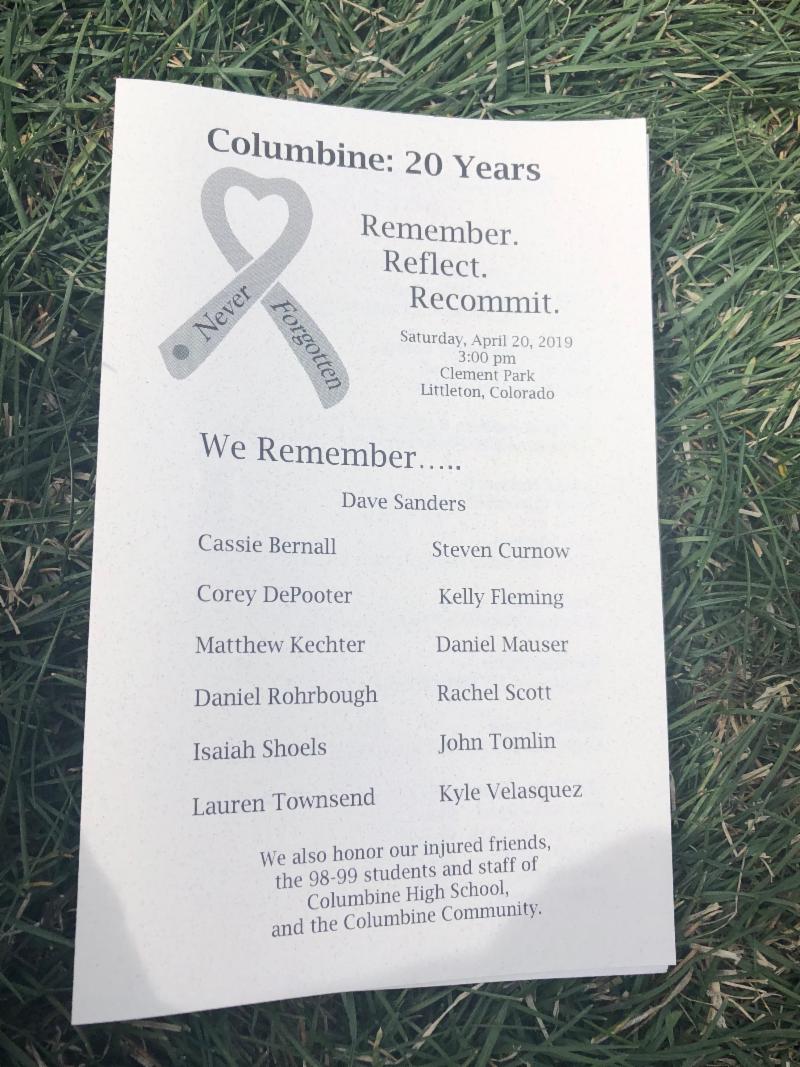 Columbine: 20 Years
Never
Forgotten
Remember.
Reflect.
Recommit.
Saturday, April 20, 2019
3:00 pm
Clement Park
Littleton, Colorado
We Remember.....
Dave Sanders
Cassie Bernall Steven Curnow
Corey DePooter Kelly Fleming
Matthew Kechter Daniel Mauser
Daniel Rohrbough Rachel Scott
Isaiah Shoels John Tomlin
Lauren Townsend Kyle Velasquez
We also honor our injured friends,
the 98-99 students and staff of
Columbine High School,
and the Columbine Community.